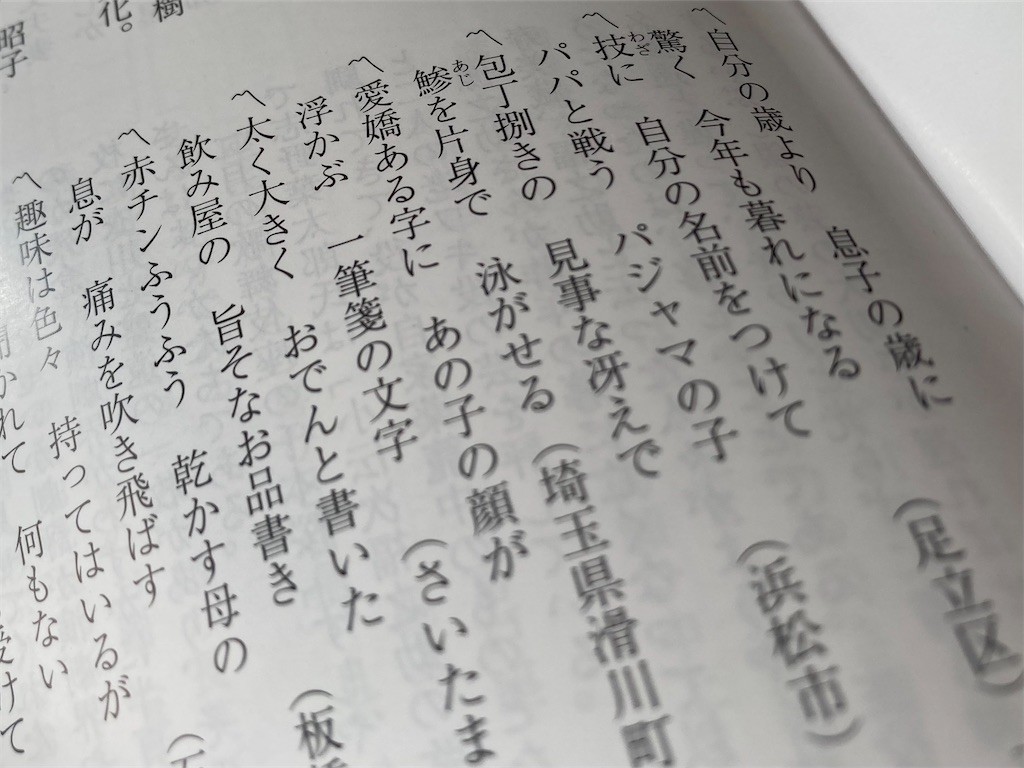 〽自分の歳より　息子の歳に
驚く　今年も暮れになる　（足立区）
〽技に　自分の名前をつけて
パパと戦う　パジャマの子　（浜松市）
〽包丁捌きの　見事な冴えで
鯵を片身で　泳がせる　（埼玉県滑川町
〽愛嬌ある字に　あの子の顔が
浮かぶ　一筆箋の文字　（さいたま
〽太く大きく　おでんと書いた
飲み屋の　旨そなお品書き　（板
〽赤チンふうふう　乾かす母の
息が　痛みを吹き飛ばす
〽趣味は色々　持ってはいるが
聞かれて　何もない
受けて
樹
化。
昭子